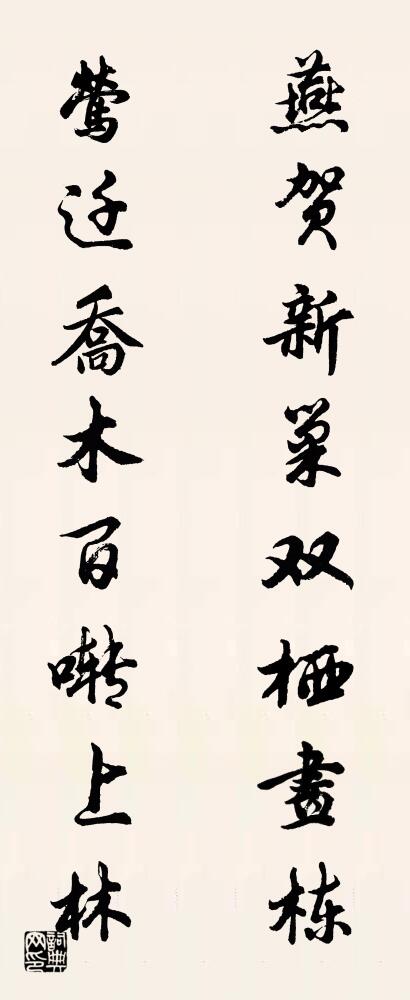 燕贺新巢双栖畫栋
莺迁喬木百啭上林
詞典网印